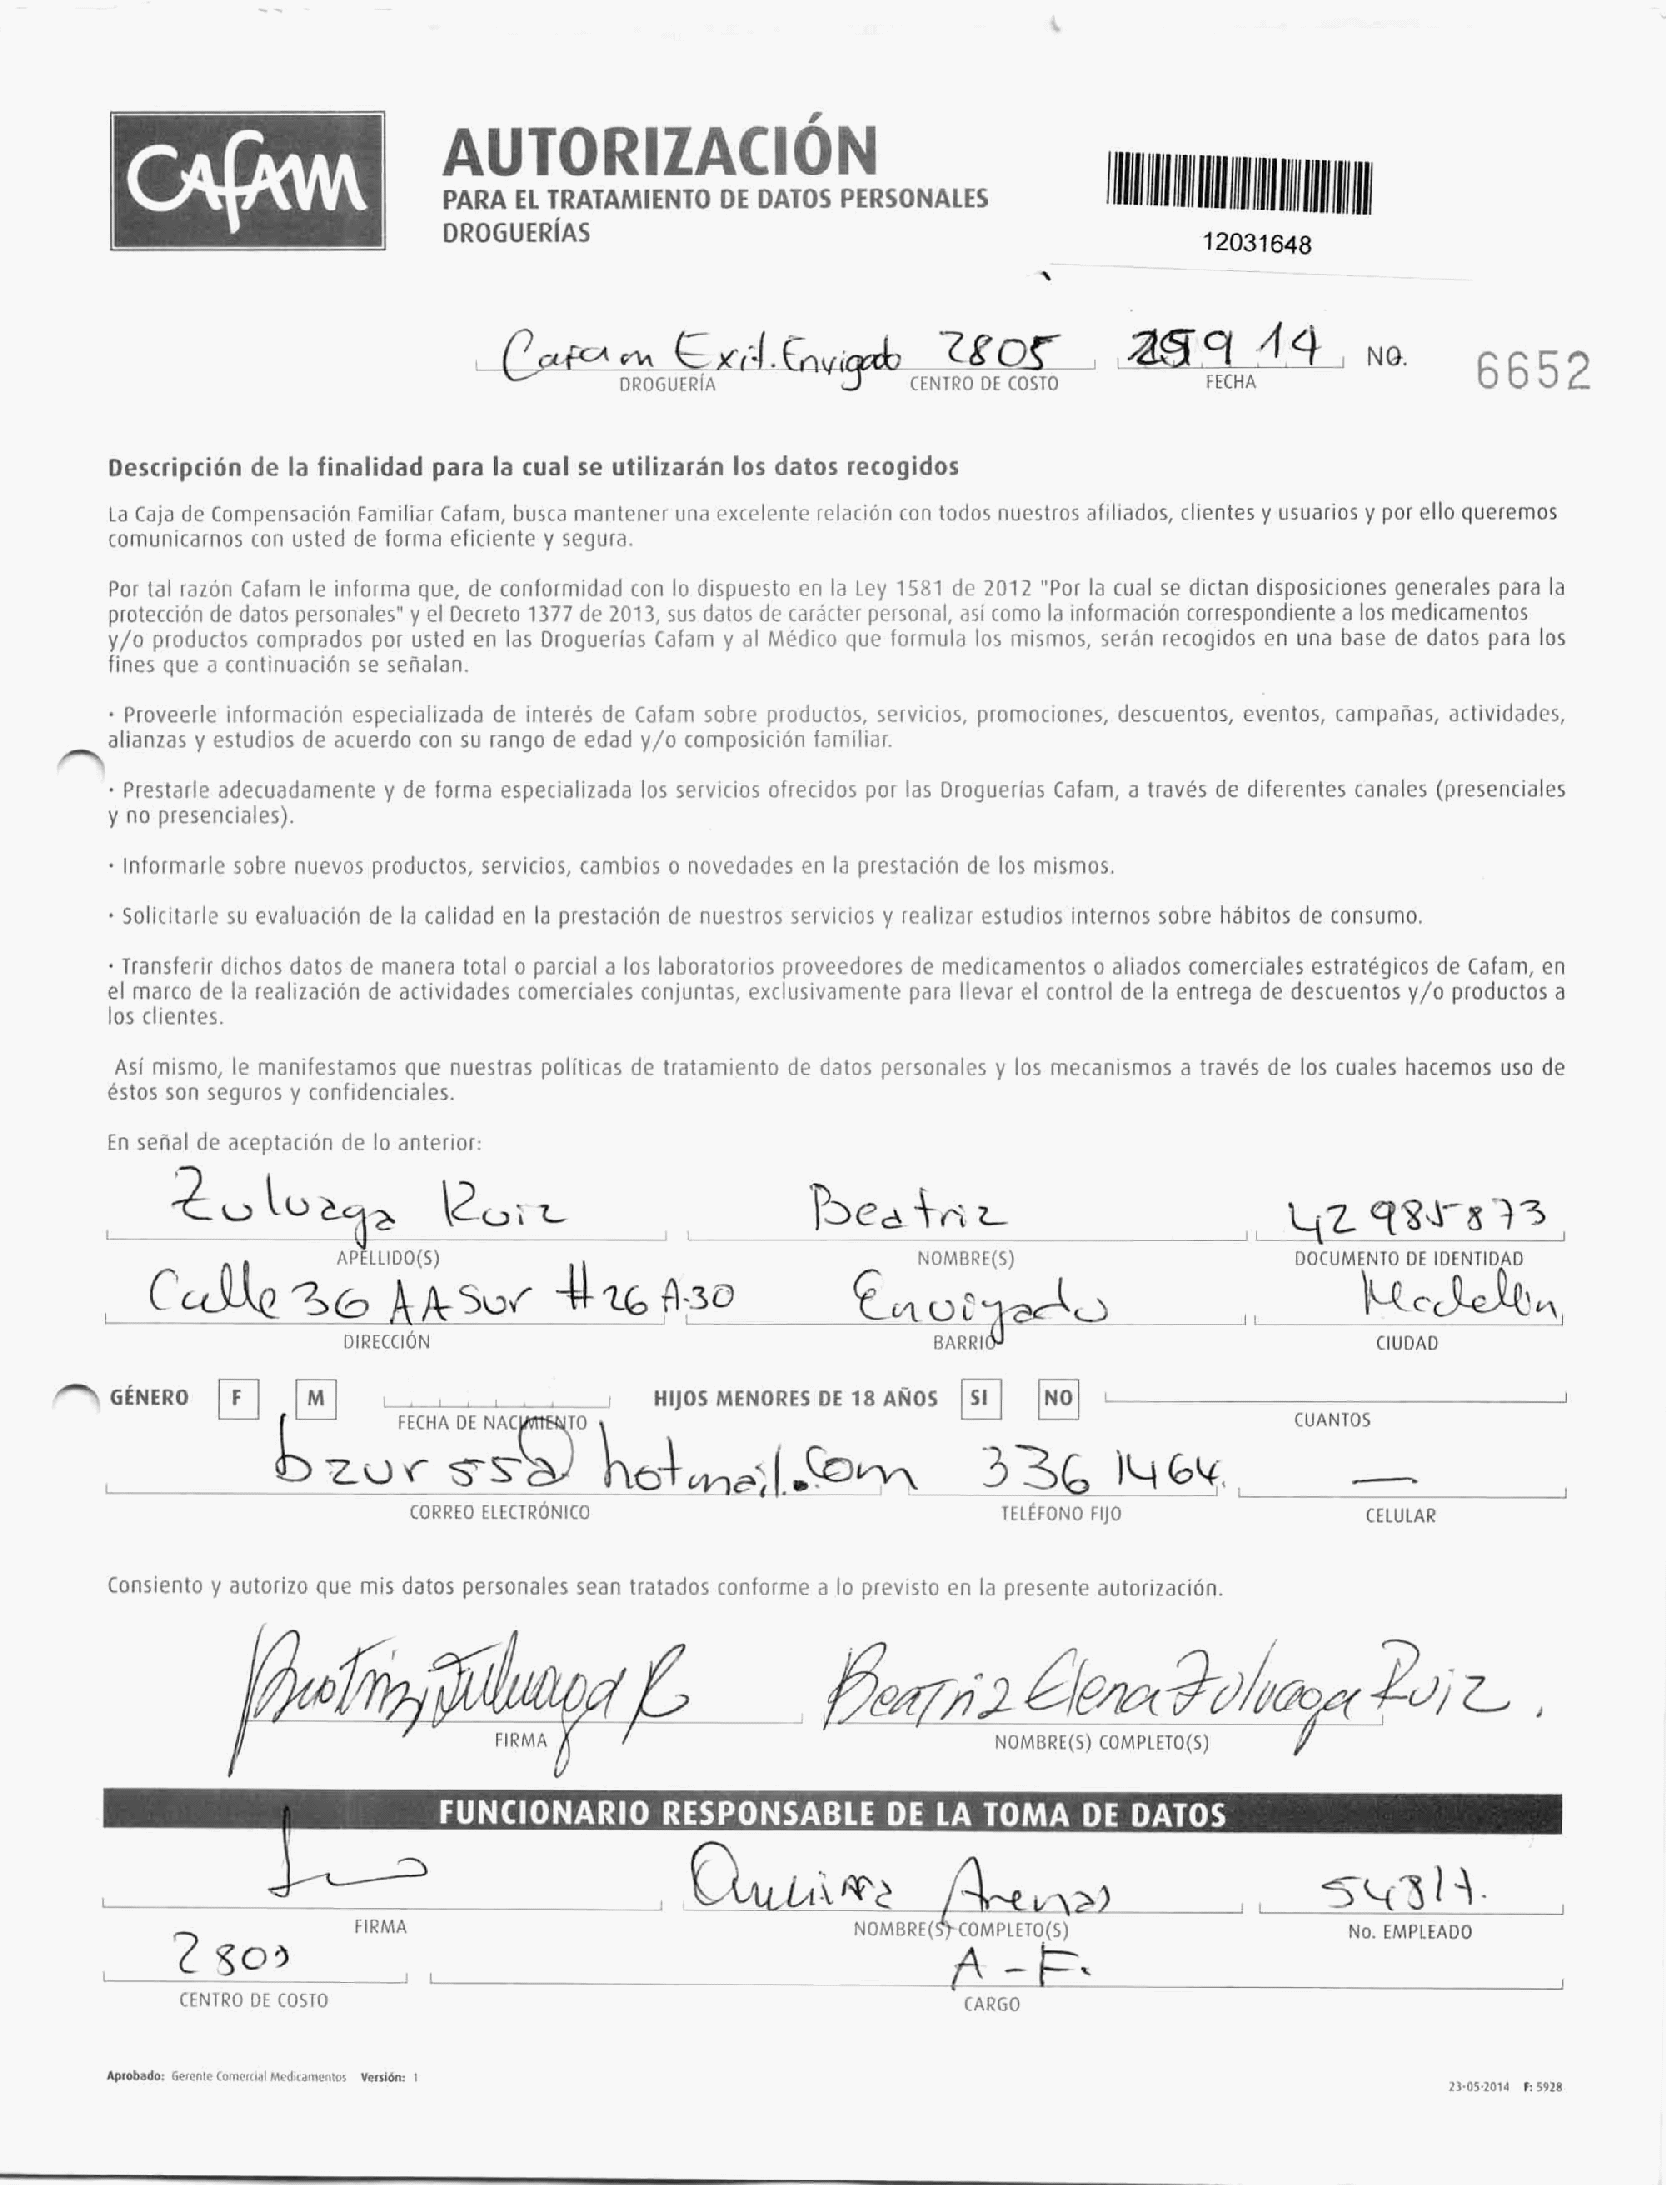 CAFAM
AUTORIZACIÓN
PARA EL TRATAMIENTO DE DATOS PERSONALES
DROGUERÍAS
12031648
Cafam Exit. Envigado 2805 9 14 NO. 6652
DROGUERÍA CENTRO DE COSTO FECHA
Descripción de la finalidad para la cual se utilizarán los datos recogidos
La Caja de Compensación Familiar Cafam, busca mantener una excelente relación con todos nuestros afiliados, clientes y usuarios y por ello queremos
comunicarnos con usted de forma eficiente y segura.
Por tal razón Cafam le informa que, de conformidad con lo dispuesto en la Ley 1581 de 2012 "Por la cual se dictan disposiciones generales para la
protección de datos personales" y el Decreto 1377 de 2013, sus datos de carácter personal, así como la información correspondiente a los medicamentos
y/o productos comprados por usted en las Droguerías Cafam y al Médico que formula los mismos, serán recogidos en una base de datos para los
fines que a continuación se señalan.
· Proveerle información especializada de interés de Cafam sobre productos, servicios, promociones, descuentos, eventos, campañas, actividades,
alianzas y estudios de acuerdo con su rango de edad y/o composición familiar.
· Prestarle adecuadamente y de forma especializada los servicios ofrecidos por las Droguerías Cafam, a través de diferentes canales (presenciales
y no presenciales).
· Informarle sobre nuevos productos, servicios, cambios o novedades en la prestación de los mismos.
· Solicitarle su evaluación de la calidad en la prestación de nuestros servicios y realizar estudios internos sobre hábitos de consumo.
· Transferir dichos datos de manera total o parcial a los laboratorios proveedores de medicamentos o aliados comerciales estratégicos de Cafam, en
el marco de la realización de actividades comerciales conjuntas, exclusivamente para llevar el control de la entrega de descuentos y/o productos a
los clientes.
Así mismo, le manifestamos que nuestras políticas de tratamiento de datos personales y los mecanismos a través de los cuales hacemos uso de
éstos son seguros y confidenciales.
En señal de aceptación de lo anterior:
Zuluaga Ruiz Beatriz 42985873
APELLIDO(S) NOMBRE(S) DOCUMENTO DE IDENTIDAD
Calle 36 AA Sur #26 A-30 Envigado Medellin
DIRECCIÓN BARRIO CIUDAD
GÉNERO F M HIJOS MENORES DE 18 AÑOS SI NO
FECHA DE NACIMIENTO CUANTOS
bzur55@hotmail.com 336 1464. —
CORREO ELECTRÓNICO TELÉFONO FIJO CELULAR
Consiento y autorizo que mis datos personales sean tratados conforme a lo previsto en la presente autorización.
Beatriz Zuluaga R Beatriz Elena Zuluaga Ruiz.
FIRMA NOMBRE(S) COMPLETO(S)
FUNCIONARIO RESPONSABLE DE LA TOMA DE DATOS
Arenas
FIRMA NOMBRE(S) COMPLETO(S) No. EMPLEADO
A-F.
CENTRO DE COSTO CARGO
Aprobado: Gerente Comercial Medicamentos Versión: 1
23-05-2014 F: 5928